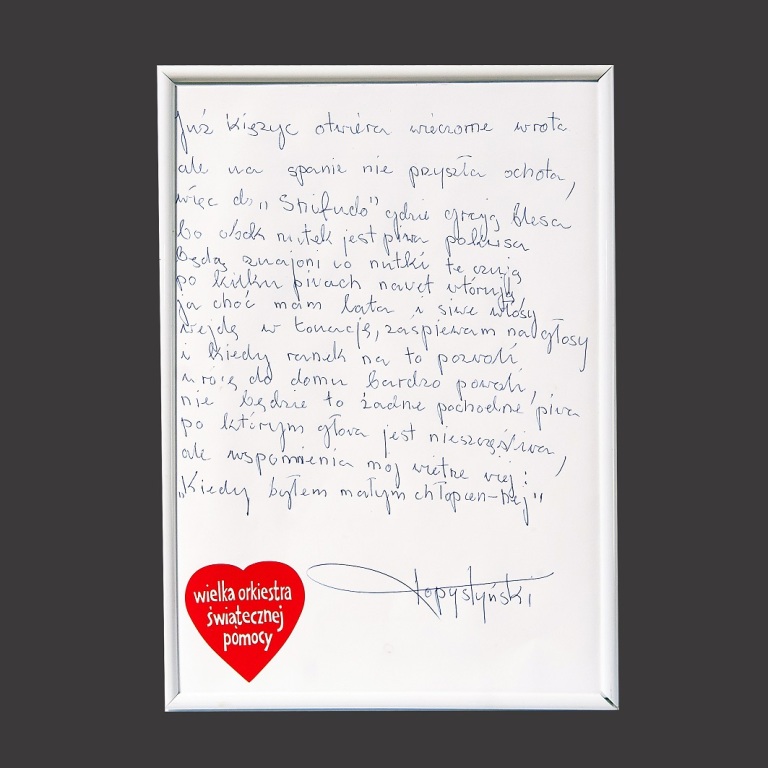 Już Księżyc otwiera wieczorne wrota
ale na spanie nie przyszła ochota,
więc do „Smifudo" gdzie grają blesa
bo obok nutek jest piwa pokusa
będą znajomi co nutki te czują
po kilku piwach nawet wtórują
ja choć mam lata i siwe włosy
wejdę w tonację, zaśpiewam na głosy
i kiedy ranek na to pozwoli
wrócę do domu bardzo powoli,
nie będzie to żadne pochodne piwa
po którym głowa jest nieszczęśliwa,
ale wspomnienia moj wietrze wiej:
„Kiedy byłem małym chłopcem-hej"
Łopystyński
wielka orkiestra
świątecznej
pomocy